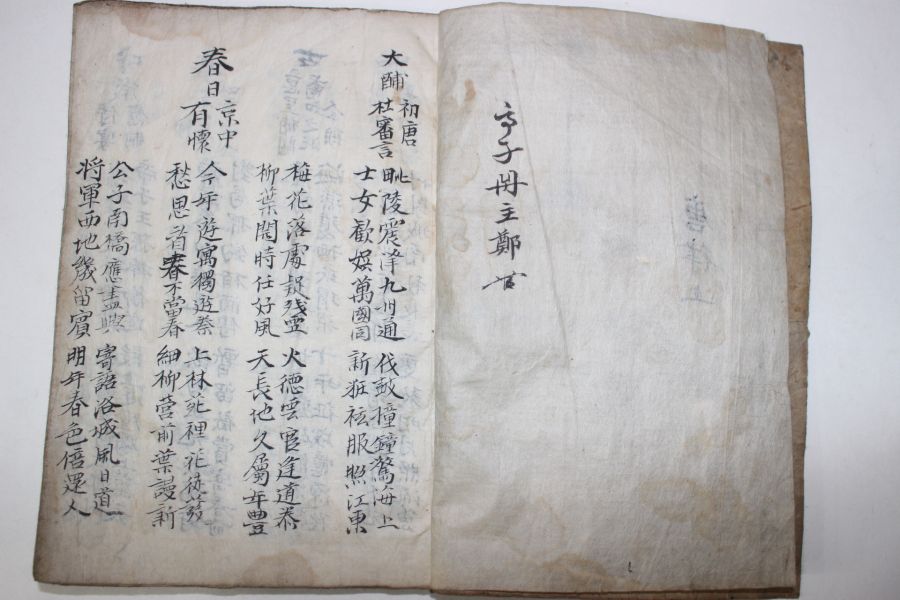 子冊主鄭
大酺
初唐
杜審言
毗陵震澤九州通
士女歡娛萬國同
伐鼓撞鐘驚海上
新粧袨服照江東
梅花落處疑殘雪
柳葉開時任好風
火德雲官逢道泰
天長地久屬年豊
春日
京中
有懷
今年遊寓獨遊秦
愁思看春不當春
上林苑裡花徒發
細柳營前葉謾新
公子南橋應盡興
將軍西地幾留賓
寄語洛城風日道
明年春色倍還人